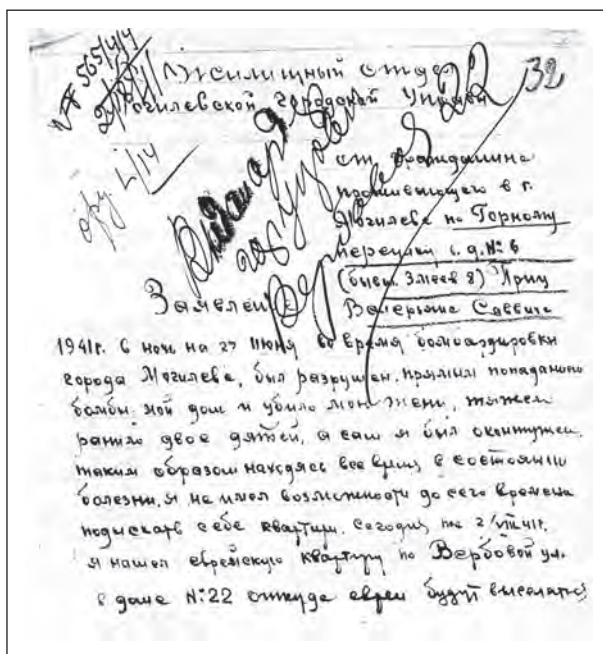 565/4/4
39
Жилищный отдел
Могилевской Городской Управы
4/14
Выдан ордер
22
от гражданина
проживающего в г.
Могилеве по Горному
переулку с. д. № 6
(бывш. Змеев 8)
Валериана Саввича
Заявление
1941г. в ночь на 27 июня во время бомбардировки
города Могилева, был разрушен, прямым попаданием
бомбы мой дом и убило мою жену, тяжело
ранило двое дятей, а сам я был оконтужен.
таким образом находясь все время в состоянии
болезни, я не имел возможности до сего времени
подыскать себе квартиру. сегодня т.е 2/VIII 41г.
я нашел еврейскую квартиру по Вербовой ул.
в доме №:22 откуда евреи будут выселятся